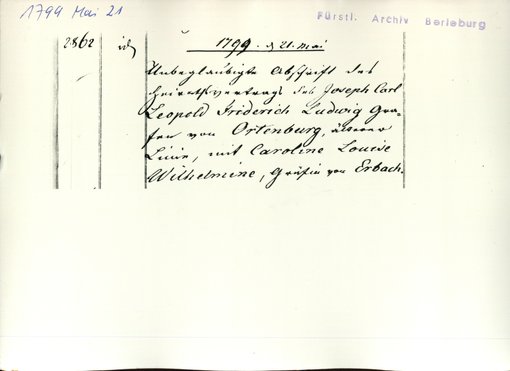 1799 Mai 21
Fürstl. Archiv Berleburg
2862
1799. d 21. Mai
Unbeglaubigte Abschrift des
Heirathsvertrags des Joseph Carl
Leopold Friderich Ludwig Gra-
fen von Ortenburg, älterer
Linie, mit Caroline Louise
Wilhelmine, Gräfin von Erbach.